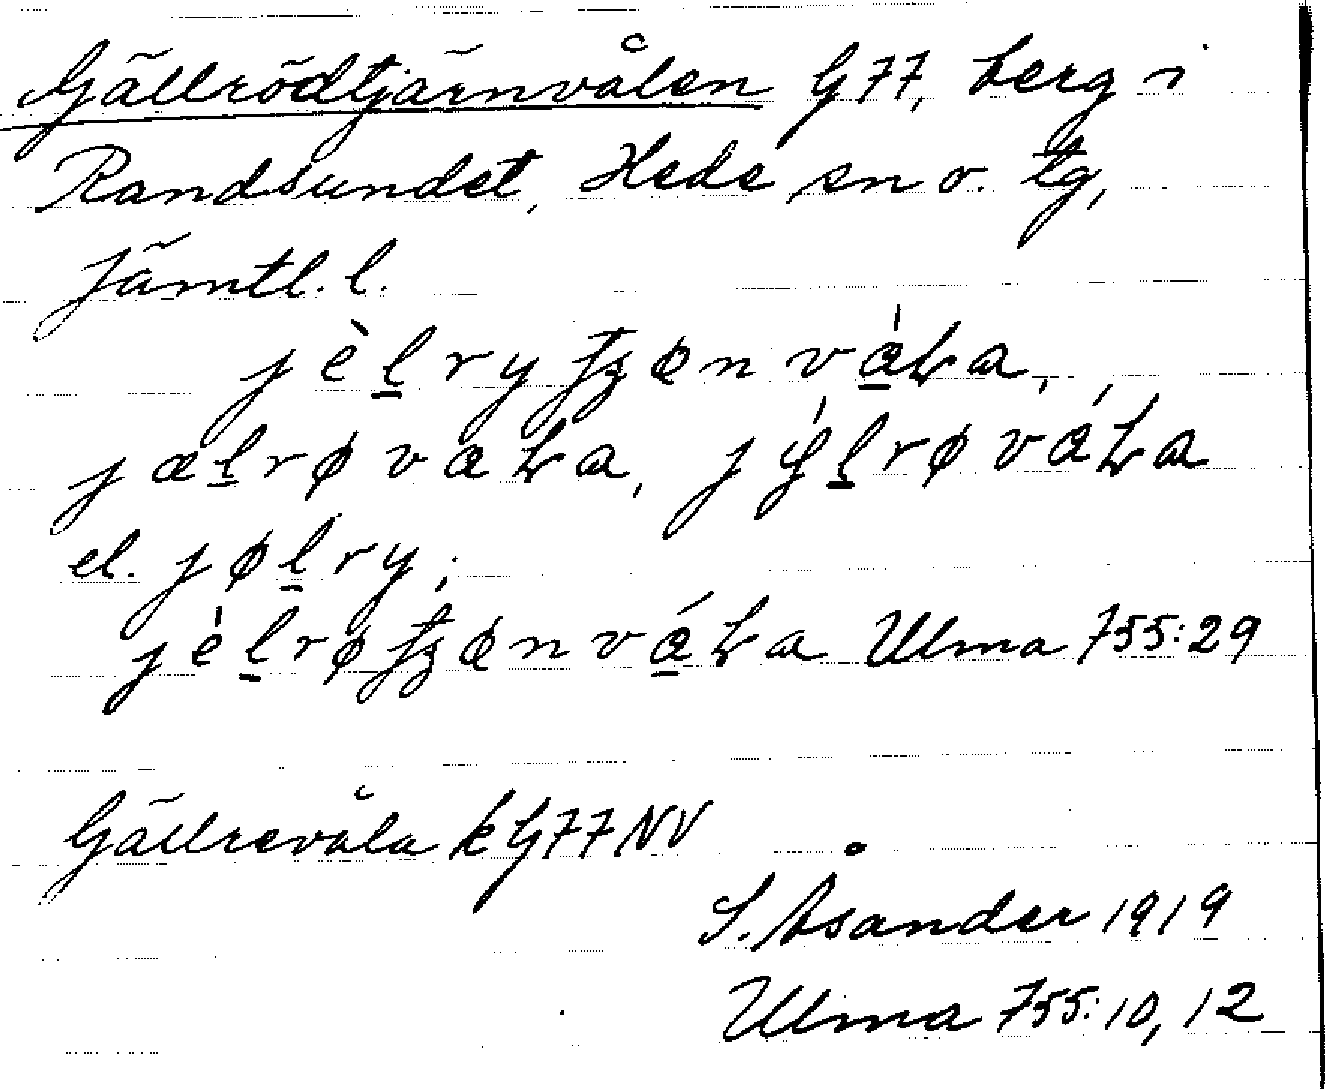 Gällrödtjärnvålen G77, berg i
Randsundet, Hede sn o. tg,
Jämtl. l.
jèḻryʈʒœnvȧ̱ƚa,
jæḻrøvaƚa, jǿḻrøváƚa
el. jøḻry;
jèḻrøʈʒœnvá̱ƚa Ulma 755:29
Gällrevåla k G77 NV
S. Åsander 1919
Ulma 755:10, 12